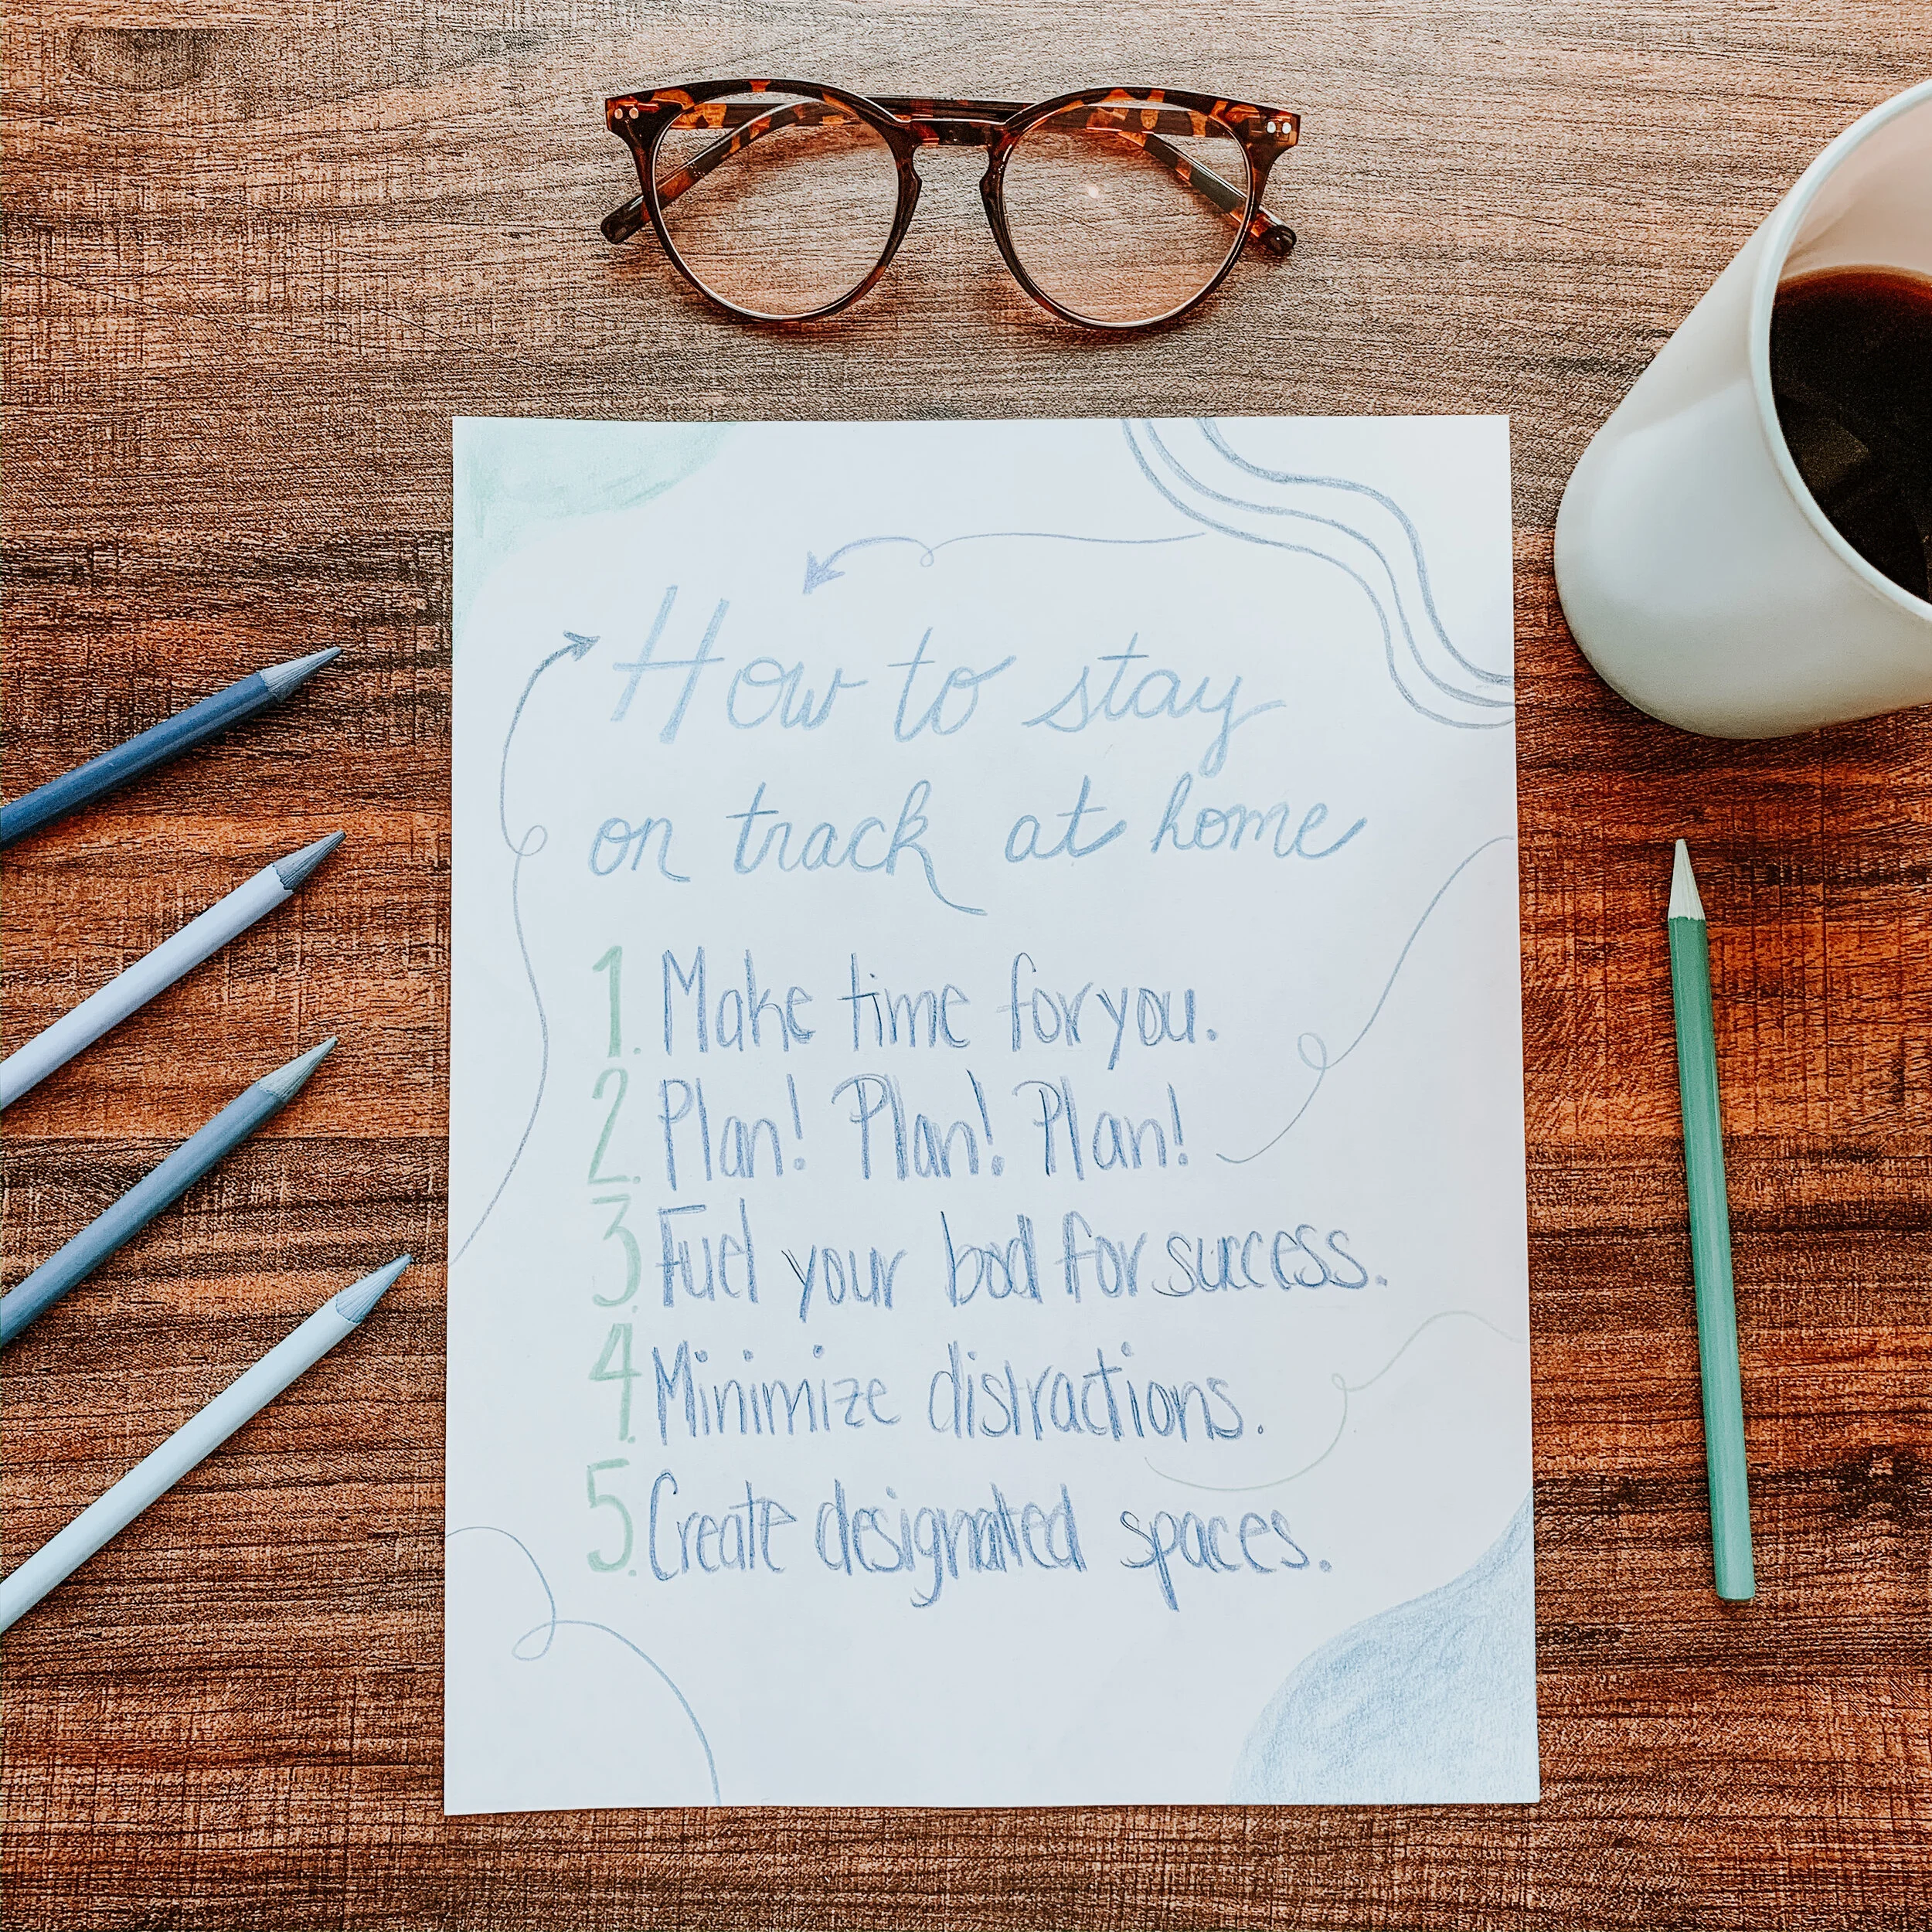 How to stay
on track at home
1. Make time for you.
2. Plan! Plan! Plan!
3. Fuel your bod for success.
4. Minimize distractions.
5. Create designated spaces.